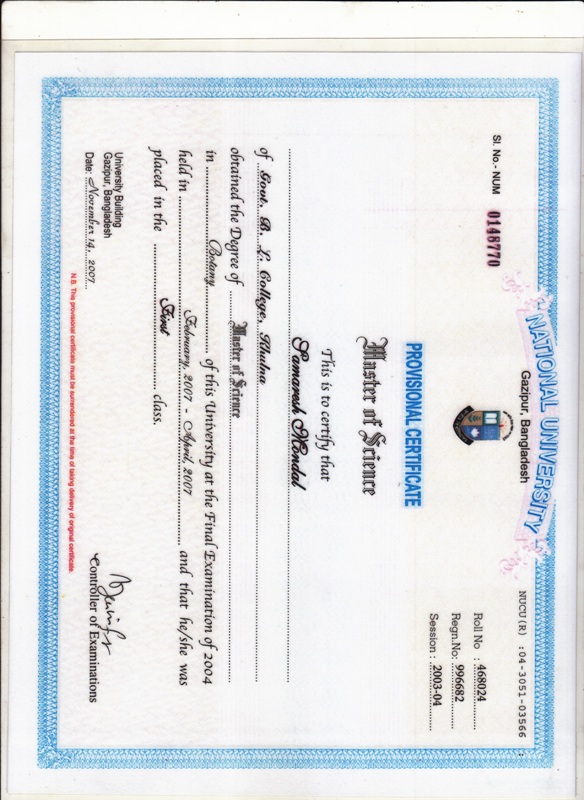 NUCU(R) :04-3051-03566
NATIONAL UNIVERSITY
Gazipur, Bangladesh
Sl. No.- NUM 0148770
Roll No : 468024
Regn.No: 996682
Session : 2003-04
PROVISIONAL CERTIFICATE
Master of Science
This is to certify that
Samaresh Mondal
of Govt. B. L. College, Khulna
obtained the Degree of Master of Science
in Botany of this University at the Final Examination of 2004
held in February, 2007 - April, 2007 and that he/she was
placed in the First class.
University Building
Gazipur, Bangladesh
Date: November 14, 2007
Controller of Examinations
N.B. This provisional certificate must be surrendered at the time of taking delivery of original certificate.